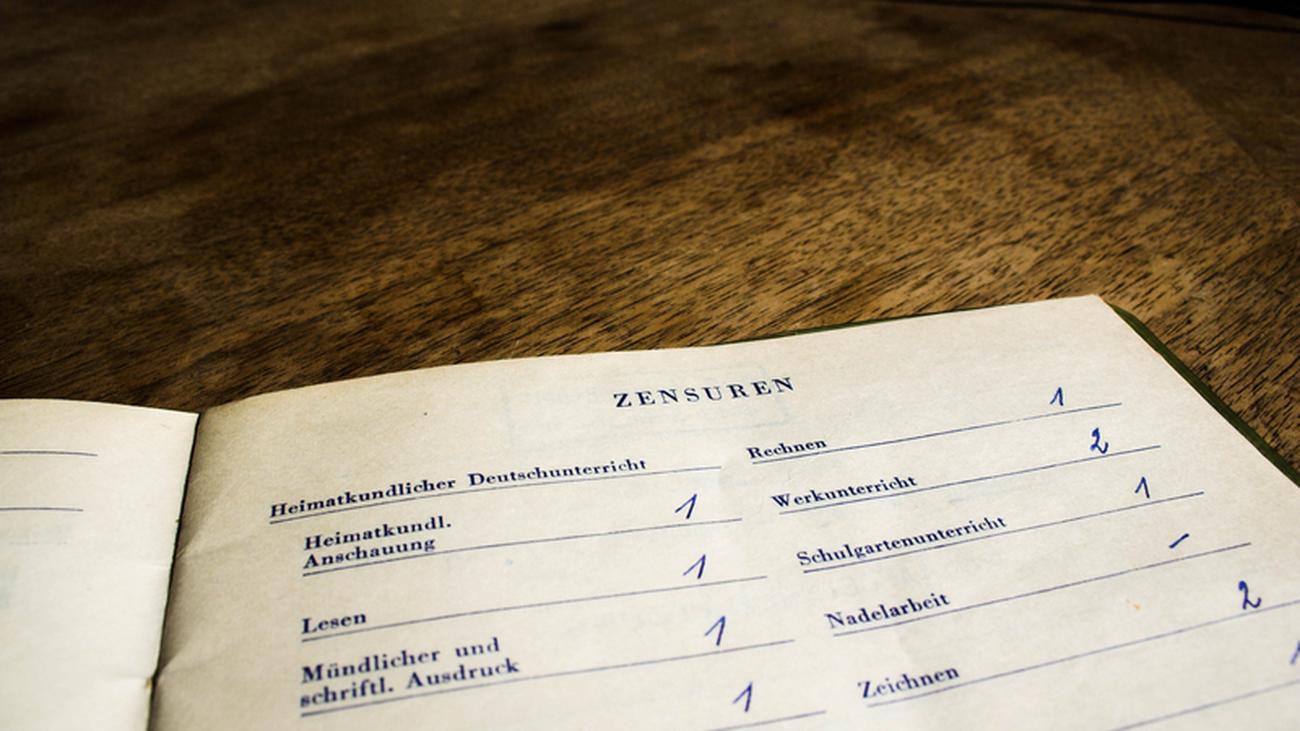 ZENSUREN
Heimatkundlicher Deutschunterricht
Heimatkundl.
Anschauung 1
Lesen 1
Mündlicher und
schriftl. Ausdruck 1
1
Rechnen 1
Werkunterricht 2
Schulgartenunterricht 1
Nadelarbeit –
Zeichnen 2